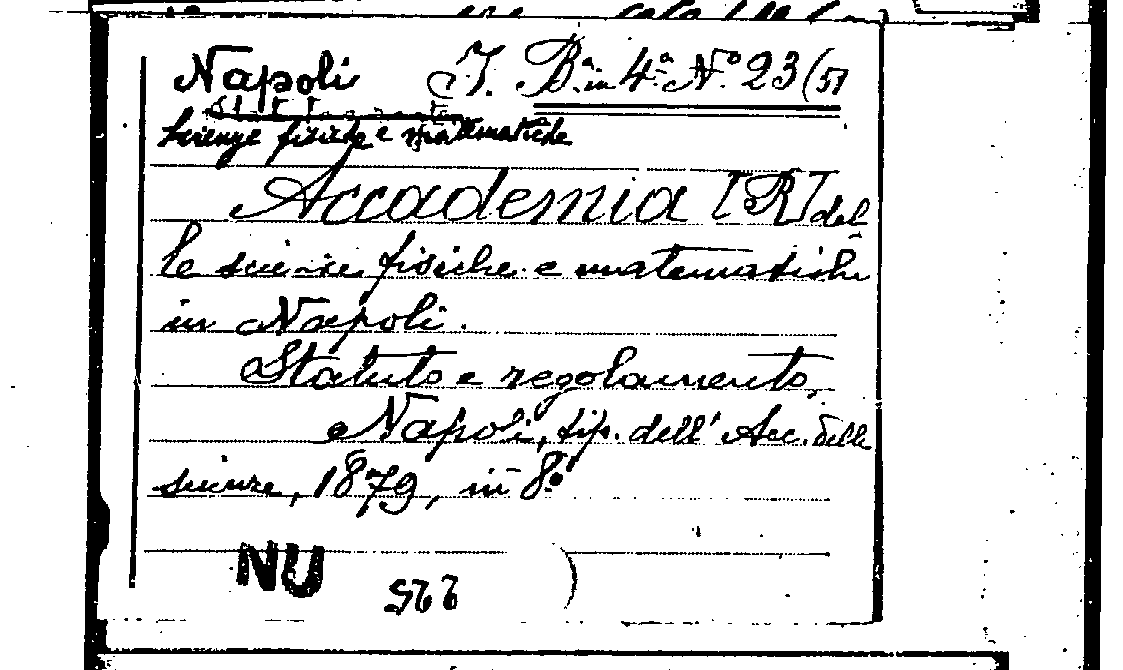 Napoli I. Bª in 4ª Nº 23 (51
Scienze fisiche e matematiche
Accademia [R] del
le scienze fisiche e matematiche
in Napoli.
Statuto e regolamento,
Napoli, tip. dell' Acc. delle
scienze, 1879, in 8º
NU